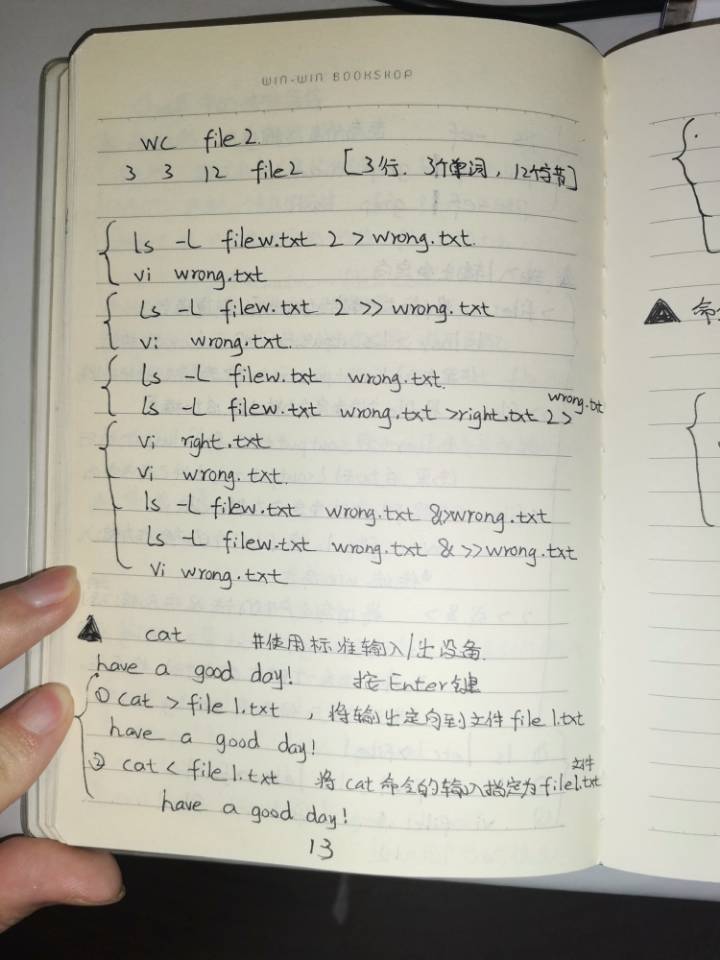 WIN-WIN BOOKSHOP
wc file2.
3 3 12 file2 [3行. 3个单词, 12个字节]
ls -L filew.txt 2 > wrong.txt.
vi wrong.txt
ls -L filew.txt 2 >> wrong.txt
vi wrong.txt.
ls -L filew.txt wrong.txt.
ls -L filew.txt wrong.txt >right.txt 2> wrong.txt
vi right.txt
vi wrong.txt.
ls -L filew.txt wrong.txt &>wrong.txt
ls -L filew.txt wrong.txt & >>wrong.txt
vi wrong.txt
▲ cat #使用标准输入/出设备.
have a good day! 按Enter键
① cat > file1.txt , 将输出定向到文件file1.txt
have a good day!
② cat < file1.txt 将cat命令的输入指定为file1.txt 文件
have a good day!
13
▲ 命